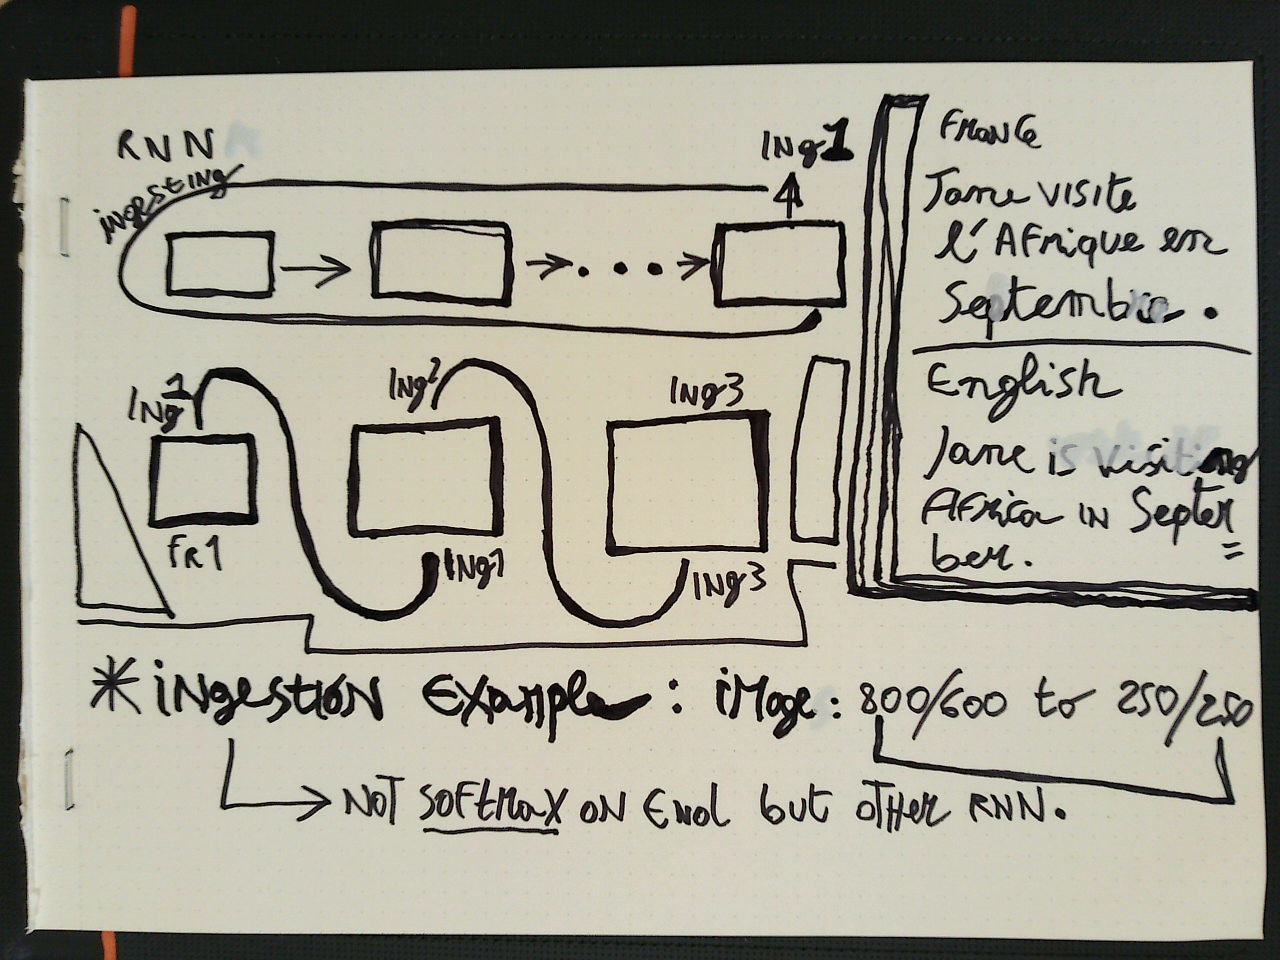 RNN
INGESTING
INg1
INg1
INg2
INg3
FR1
INg1
INg3
FRANCe
Jane visite
l'Afrique en
Septembre.
English
Jane is visiting
Africa in Septem
ber.
* iNgestioN Example : iMage : 800/600 to 250/250
NOT SOFtMaX oN End but oTHer RNN.